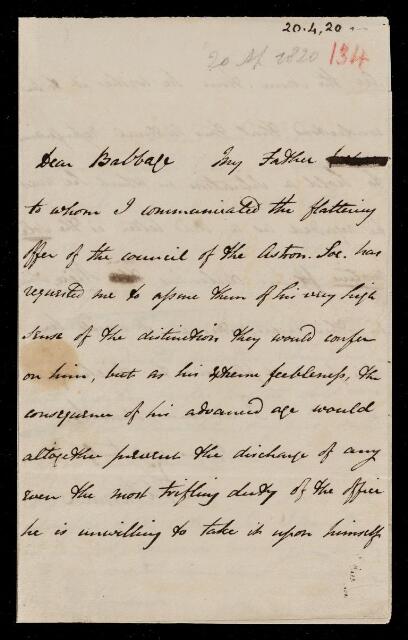 20.4.20
20 Ap 1820 134
Dear Babbage My Father
to whom I communicated the flattering
offer of the council of the Astron. Soc. has
requested me to assure them of his very high
sense of the distinction they would confer
on him, but as his extreme feebleness, the
consequence of his advanced age would
altogether prevent the discharge of any
even the most trifling duty of the office
he is unwilling to take it upon himself